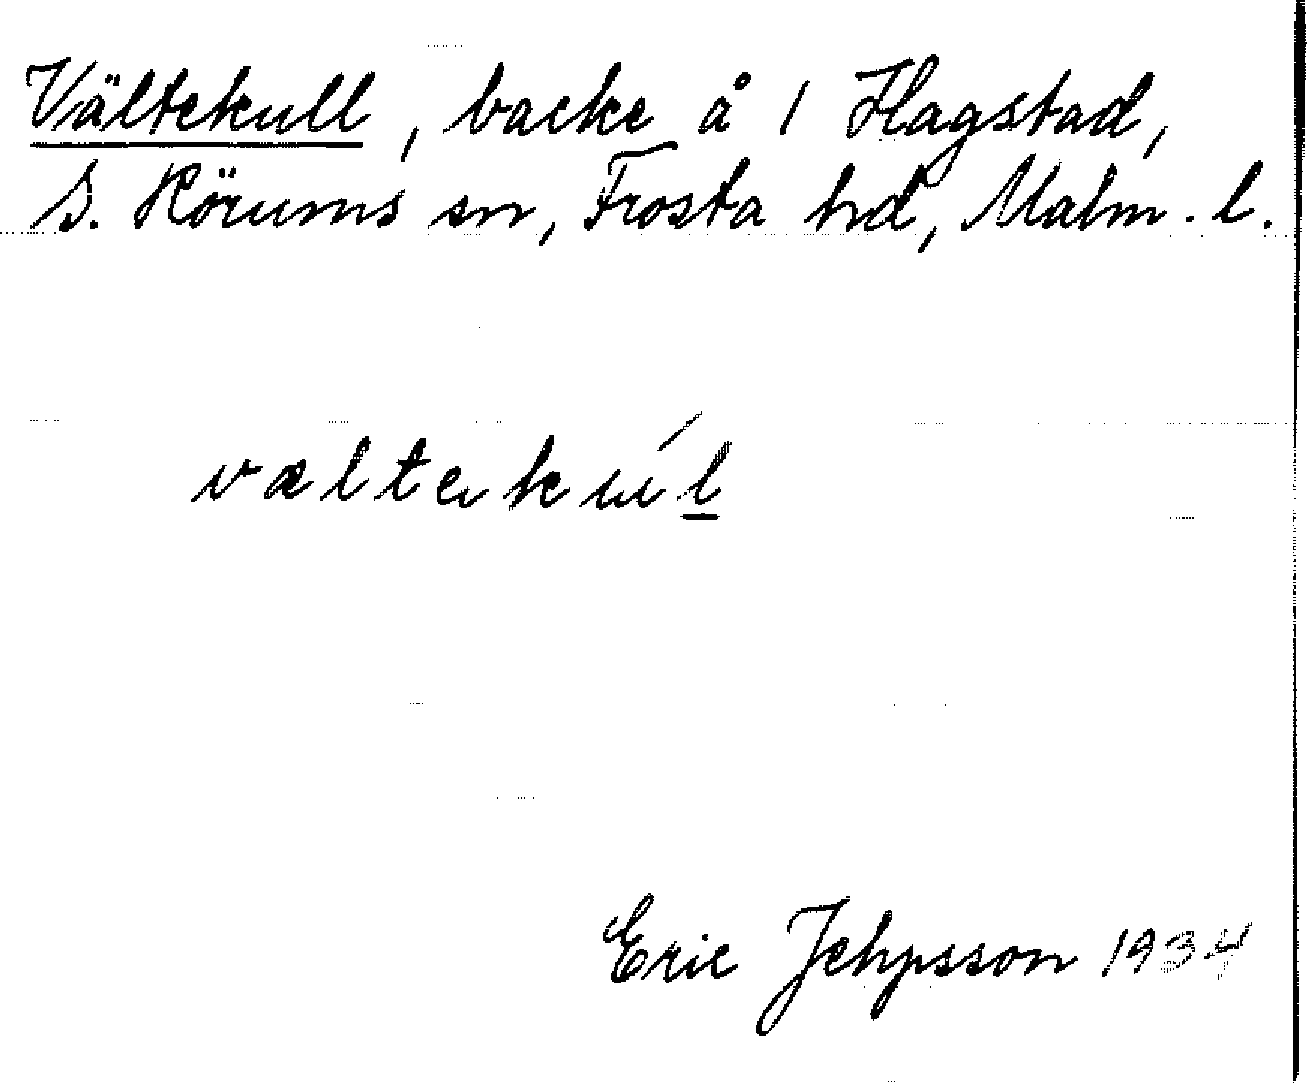 Vältekull, backe å 1 Hagstad,
S. Rörums sn, Frosta hd, Malm. l.
væltekúl
Eric Jehpsson 1934